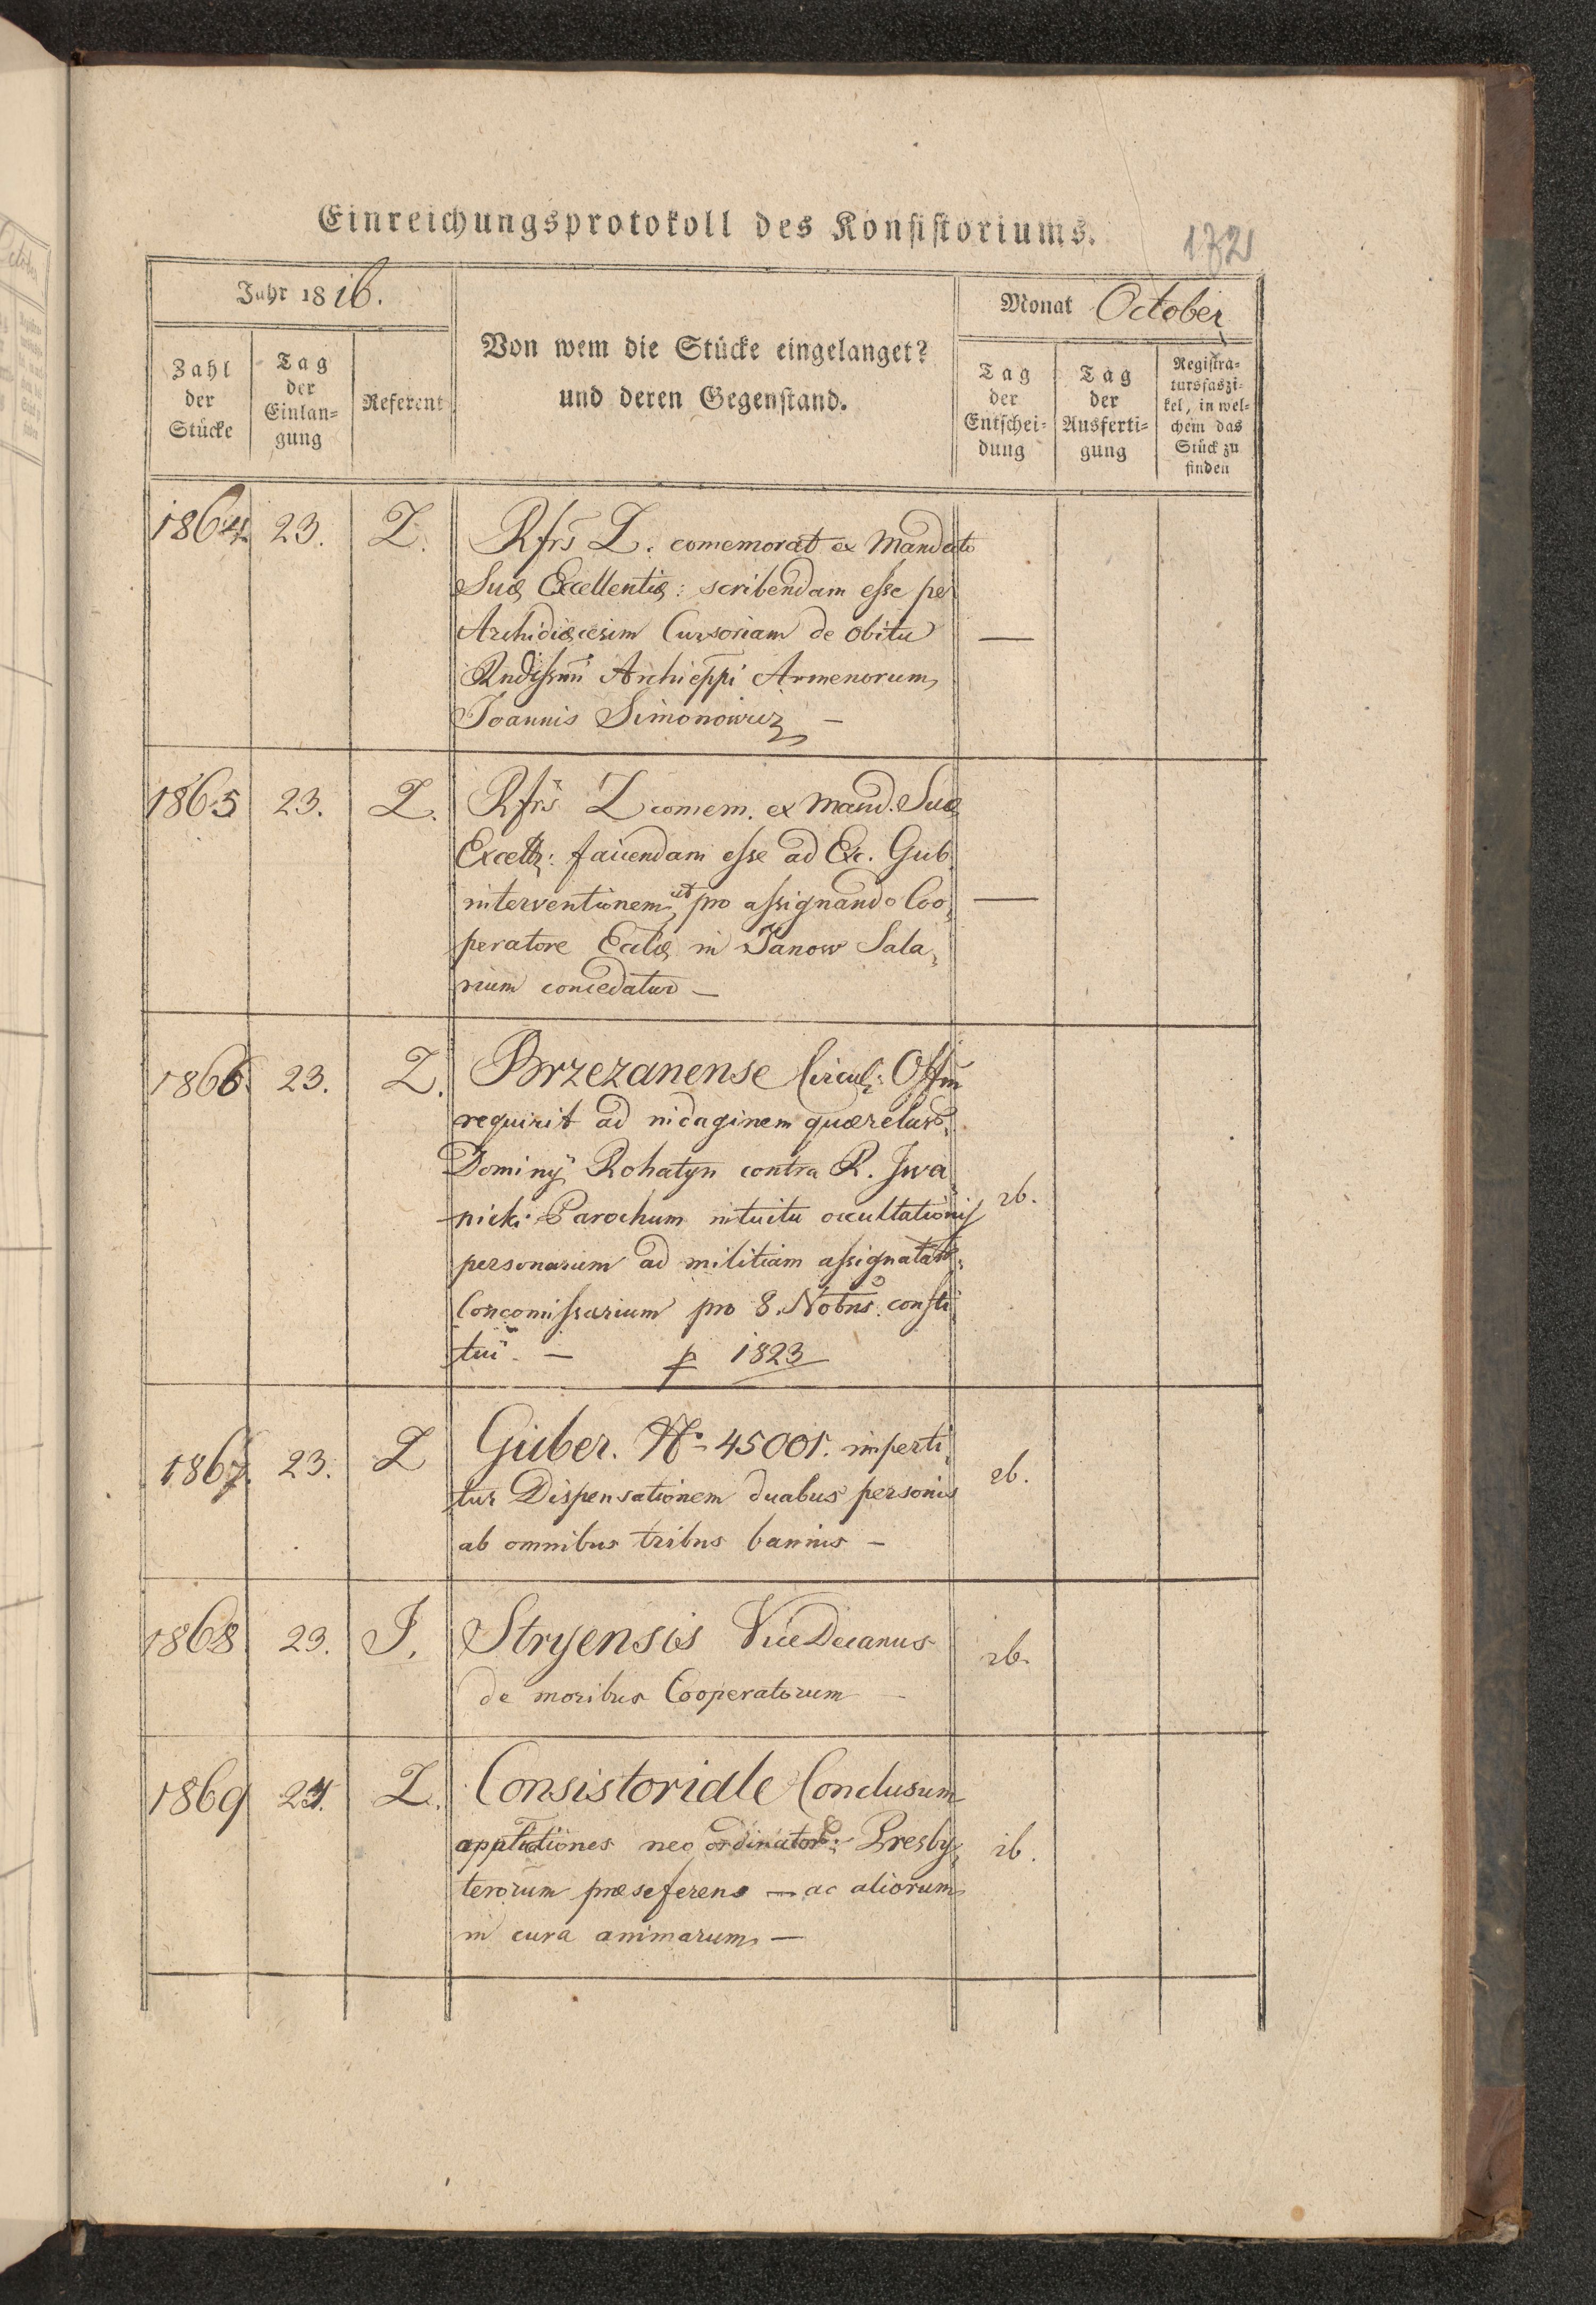 Einreichungsprotokoll des Konsistoriums.
172
Jahr 1816.
Monat October
Zahl der Stücke
Tag der Einlangung
Referent
Von wem die Stücke eingelanget?
und deren Gegenstand.
Tag der Entscheidung
Tag der Ausfertigung
Registratursfaszikel, in welchem das Stück zu finden
1864 23. Z. Rfrs Z. comemorat ex Mandato
Suæ Excellentiæ: scribendam esse per
Archidiæcesim Cursoriam de obitu —
Rndissimi Archieppi Armenorum
Joannis Simonowicz —
1865 23. Z. Rfrs Z comem. ex Mand. Suæ
Excell: faciendam esse ad Exc. Gub.
interventionem, ut pro assignando Coo, —
peratore Eccliæ in Janow Sala,
rium concedatur —
1866. 23. Z. Brzezanense Circul: Offm
requirit ad indaginem quærelar.
Dominij Rohatyn contra R. Iwa,
nicki Parochum intuitu occultationis 26.
personarum ad militiam assignatar:
Concomissarium pro 8. Nobris. consti,
tui. — p 1823
1867. 23. Z Guber. No 45001. imperti,
tur Dispensationem duabus personis 26.
ab omnibus tribus bannis —
1868 23. J. Stryensis ViceDecanus 26.
de moribus Cooperatorum —
1869 24. Z. Consistoriale Conclusum
applicationes neo ordinator: Presby, 26.
terorum præseferens — ac aliorum
in cura animarum —